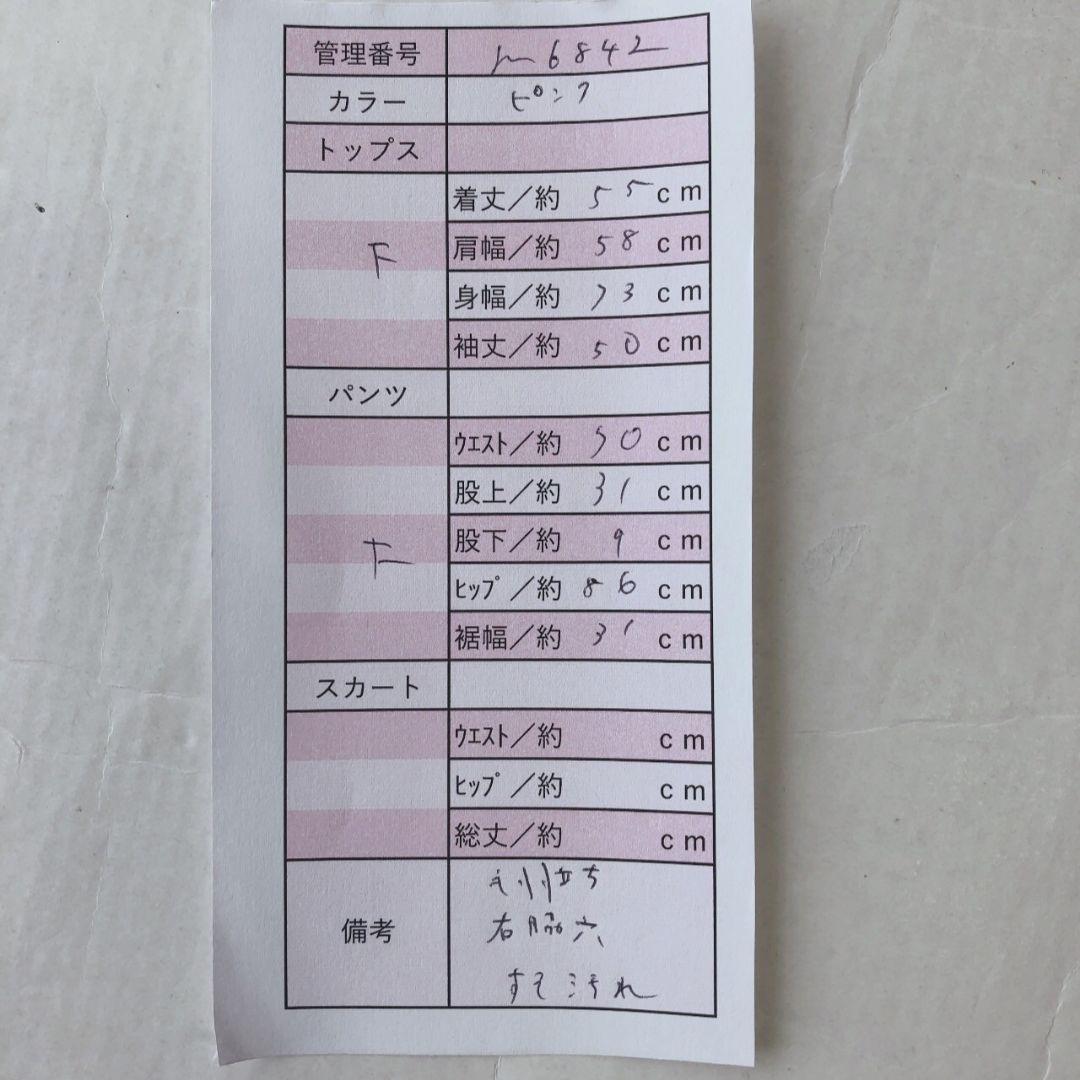 管理番号 m6842
カラー ピンク
トップス
着丈／約 55cm
F 肩幅／約 58cm
身幅／約 73cm
袖丈／約 50cm
パンツ
ウエスト／約 50cm
股上／約 31cm
F 股下／約 9cm
ヒップ／約 86cm
裾幅／約 31cm
スカート
ウエスト／約 cm
ヒップ／約 cm
総丈／約 cm
備考
立ち
右脇穴
すそ汚れ